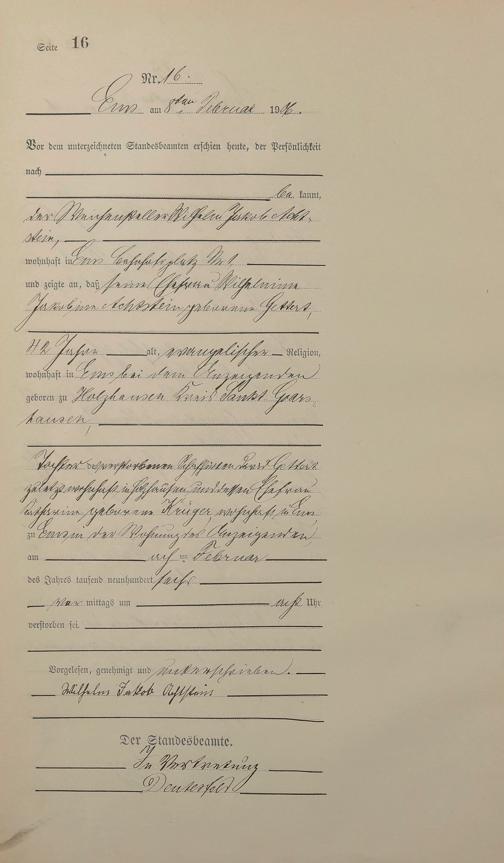 Seite 16
Nr. 16.
Ems am 8ten Februar 1906.
Vor dem unterzeichneten Standesbeamten erschien heute, der Persönlichkeit
nach
be kannt,
der Weichensteller Wilhelm Jakob Acht-
stein,
wohnhaft in Ems Bahnhofsplatz Nr 1
und zeigte an, daß seine Ehefrau Wilhelmine
Jakobine Achtstein, geborene Gettert,
42 Jahre alt, evangelischer Religion,
wohnhaft in Ems bei dem Anzeigenden
geboren zu Holzhausen Kreis Sankt Goars-
hausen,
Tochter des verstorbenen Gettert
zuletzt wohnhaft in Holzhausen und dessen Ehefrau
Katharine, geborene Krüger, wohnhaft in Ems
zu Ems in der Wohnung des Anzeigenden,
am acht ten Februar
des Jahres tausend neunhundert sechs
vor mittags um acht Uhr
verstorben sei.
Vorgelesen, genehmigt und unterschrieben.
Wilhelm Jakob Achtstein
Der Standesbeamte.
In Vertretung